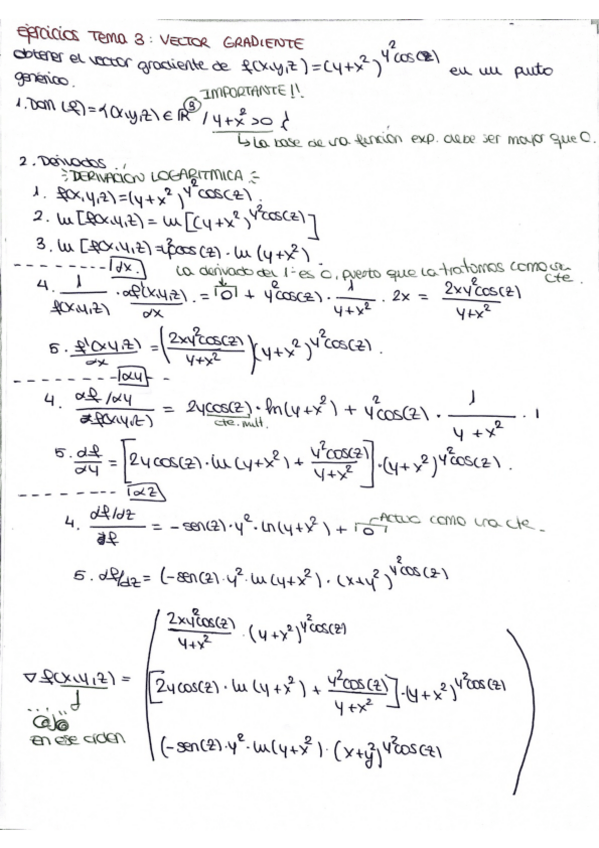 ejercicios TEMA 3: VECTOR GRADIENTE
obtener el vector gradiente de f(x,y,z)=(y+x²)^{y²cos(z)} en un punto
genérico.
IMPORTANTE!!
1. Dom(f)={(x,y,z)∈ℝ³/y+x²>0}
↳ La base de una función exp. debe ser mayor que 0.
2. Derivadas.
DERIVACIÓN LOGARITMICA
1. f(x,y,z)=(y+x²)^{y²cos(z)}
2. ln[f(x,y,z)=ln[(y+x²)^{y²cos(z)}]
3. ln[f(x,y,z)=y²cos(z)·ln(y+x²)
dx.
La derivada del 1º es 0, puesto que la tratamos como una cte.
4. 1/f(x,y,z) · df(x,y,z)/dx = 0 + y²cos(z) · 1/y+x² · 2x = 2xy²cos(z)/y+x²
5. f'(x,y,z)/dx = (2xy²cos(z)/y+x²)(y+x²)^{y²cos(z)}.
dy
4. df/dy / f(x,y,z) = 2ycos(z)·ln(y+x²) + y²cos(z) · 1/y+x² · 1
cte. mult.
5. df/dy = [2ycos(z)·ln(y+x²) + y²cos(z)/y+x²]·(y+x²)^{y²cos(z)}.
dz
4. df/dz / f = -sen(z)·y²·ln(y+x²) + 0 Actua como una cte.
5. df/dz = (-sen(z)·y²·ln(y+x²)·(x+y²)^{y²cos(z)}
2xy²cos(z)/y+x² · (y+x²)^{y²cos(z)}
∇f(x,y,z) = [2ycos(z)·ln(y+x²) + y²cos(z)/y+x²]·(y+x²)^{y²cos(z)}
Ojo
en ese orden
(-sen(z)·y²·ln(y+x²)·(x+y²)^{y²cos(z)}